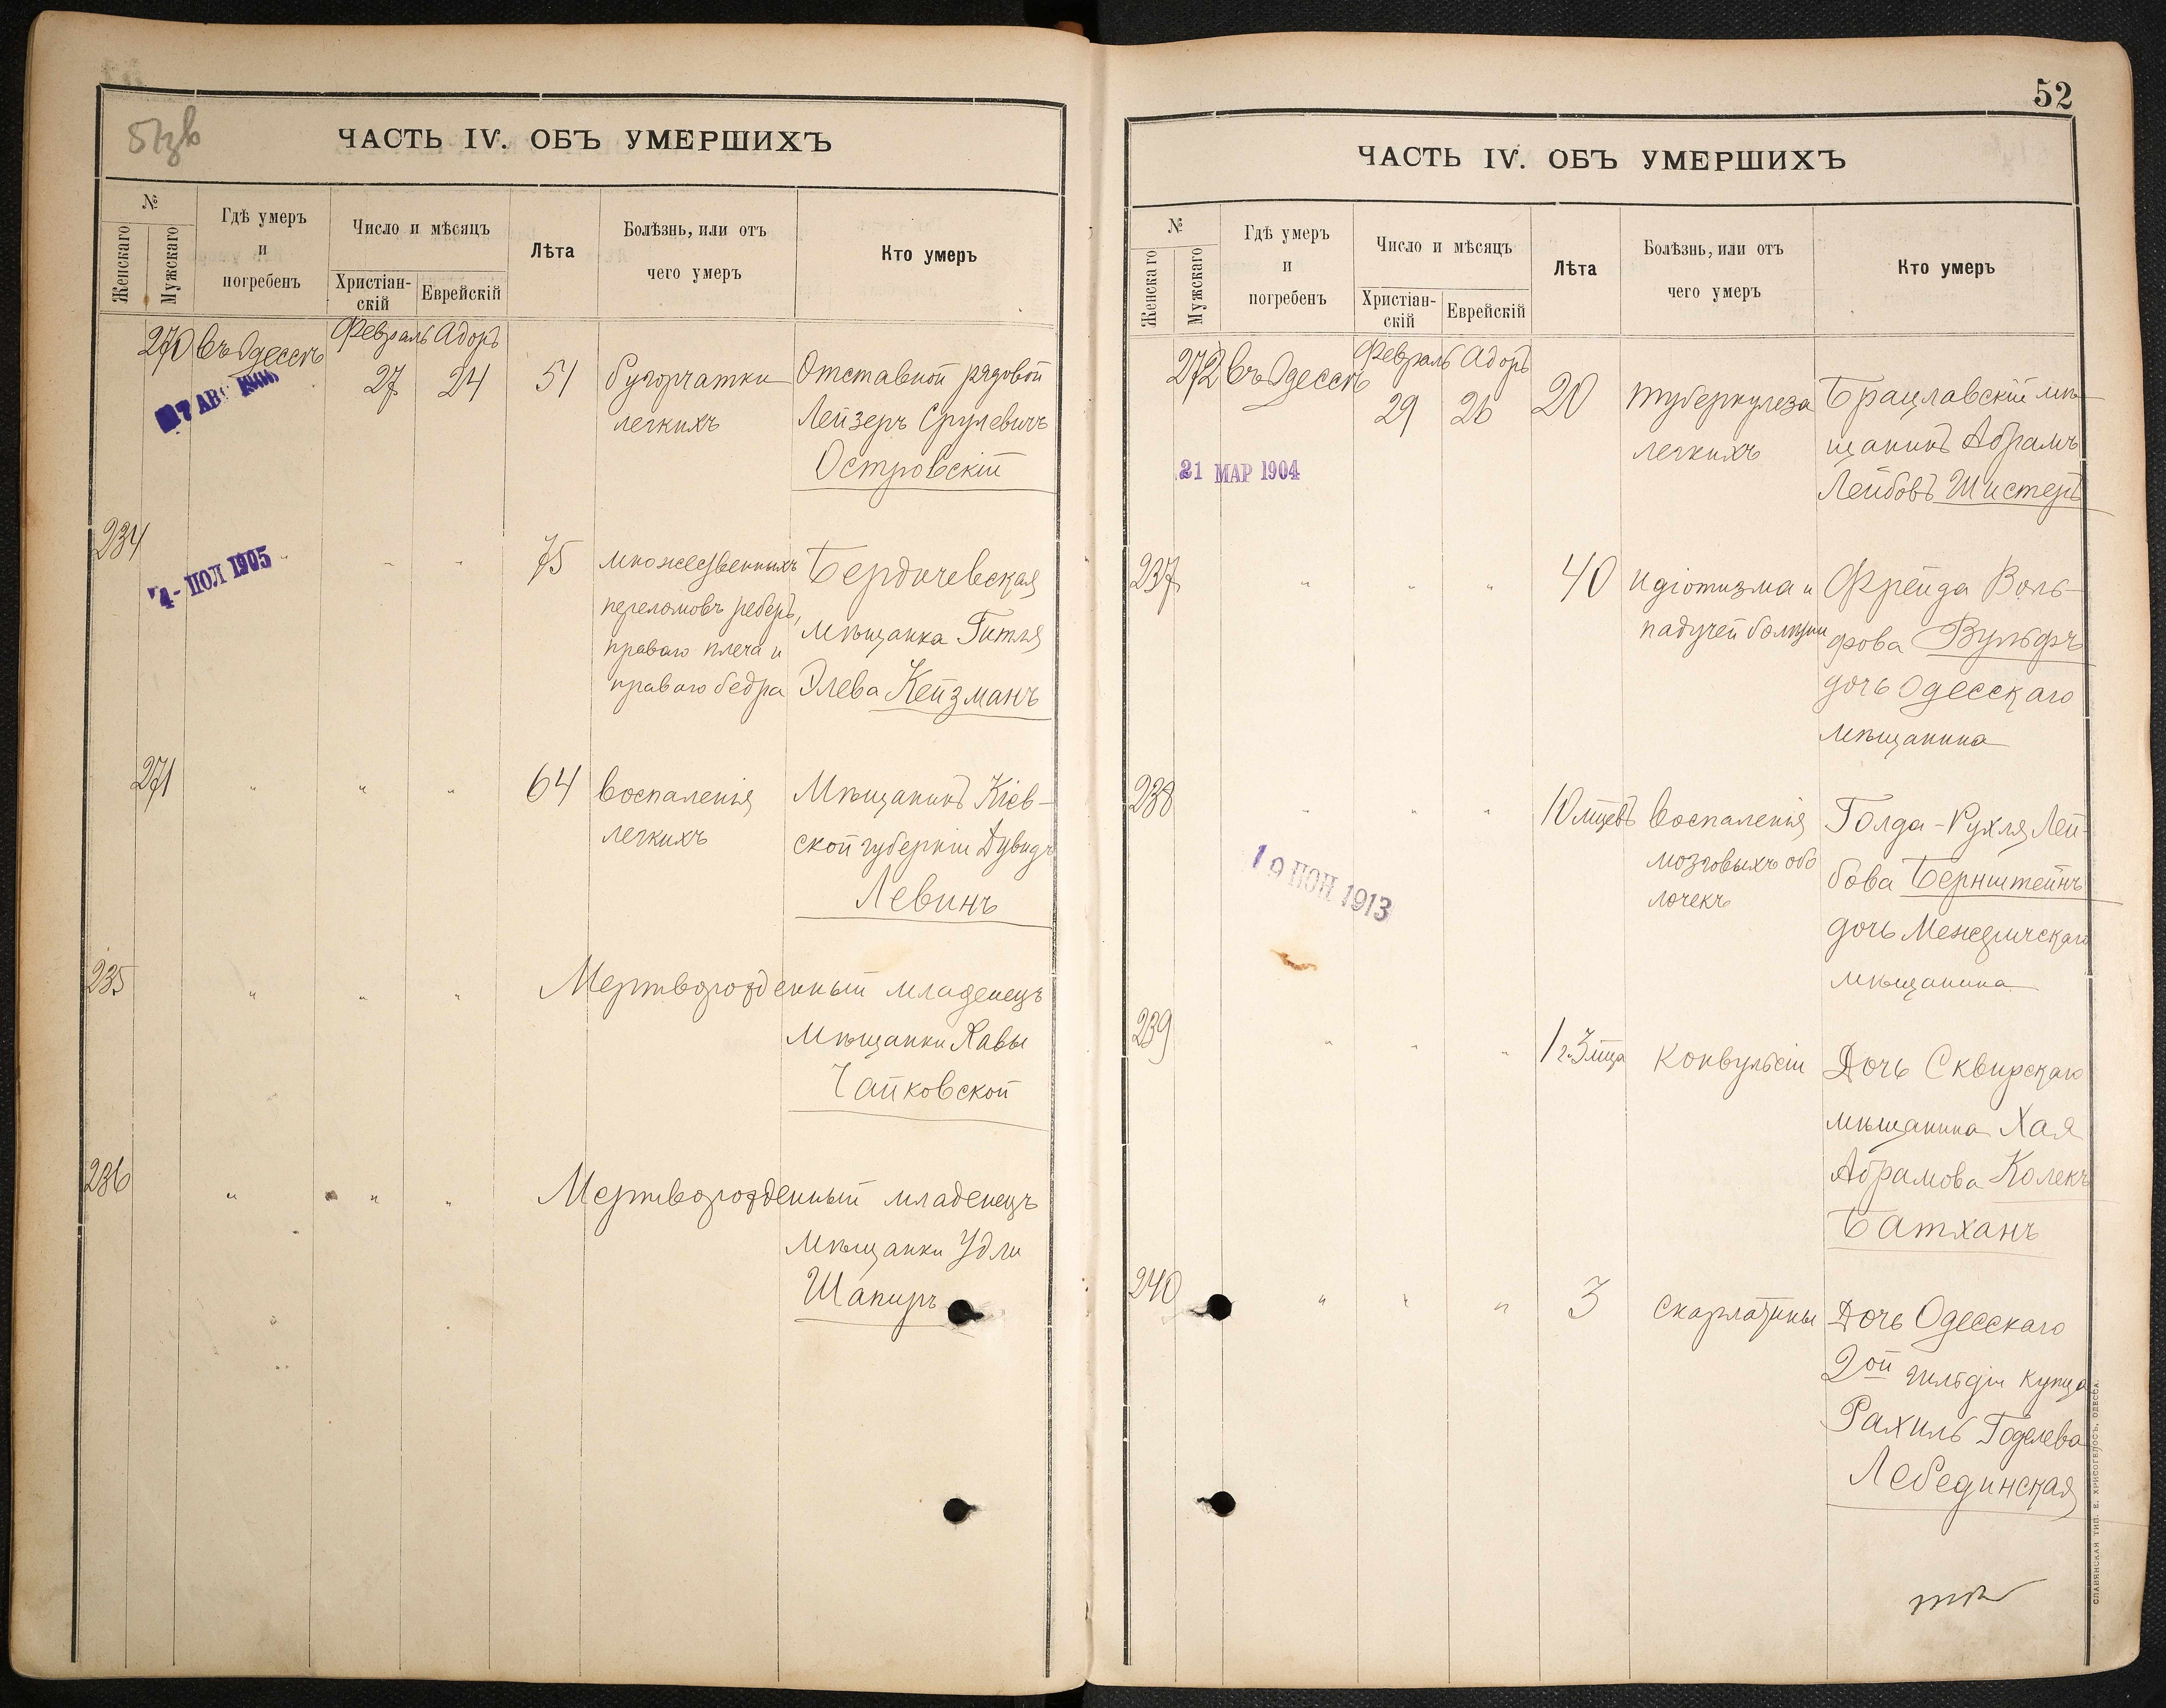 51зв
ЧАСТЬ IV. ОБЪ УМЕРШИХЪ
№
Женскаго
Мужскаго
Гдѣ умеръ
и
погребенъ
Число и мѣсяцъ
Христіан-
скій
Еврейскій
Лѣта
Болѣзнь, или отъ
чего умеръ
Кто умеръ
270 въ Одессѣ Февраль Адоръ
27 24 51 бугорчатки Отставной рядовой
легкихъ Лейзеръ Срулевичъ
Островскій
234
75 множественныхъ Бердичевская
переломовъ реберъ, мѣщанка Гитля
праваго плеча и
праваго бедра Элева Кейзманъ
4- ИЮЛ 1905
271 " " " 64 воспаленія Мѣщанинъ Кіев-
легкихъ ской губерніи Дувидъ
Левинъ
235 " " " Мертворожденный младенецъ
мѣщанки Хавы
Чайковской
236 " " " Мертворожденный младенецъ
мѣщанки Удли
Шапиръ
52
ЧАСТЬ IV. ОБЪ УМЕРШИХЪ
№
Женскаго
Мужскаго
Гдѣ умеръ
и
погребенъ
Число и мѣсяцъ
Христіан-
скій
Еврейскій
Лѣта
Болѣзнь, или отъ
чего умеръ
Кто умеръ
272 въ Одессѣ Февраль Адоръ
29 26 20 туберкулеза Брацлавскій мѣ-
легкихъ щанинъ Абрамъ
Лейбовъ Шистеръ
21 МАР 1904
237 " " " 40 идіотизма и Фрейда Воль-
падучей болѣзни фова Вульфъ
дочь Одесскаго
мѣщанина
238 " " " 10 мцевъ воспаленія Голда-Рухля Лей-
мозговыхъ обо бова Бернштейнъ
лочекъ дочь Межиричскаго
мѣщанина
19 ИЮН 1913
239 " " " 1 г. 3 мца конвульсіи Дочь Сквирскаго
мѣщанина Хая
Абрамова Колекъ
Батханъ
240 " " " 3 скарлатины Дочь Одесскаго
2ой гильдіи купца
Рахиль Годелева
Лебединская
СЛАВЯНСКАЯ ТИП. Е. ХРИСОГЕЛОСЪ, ОДЕССА.